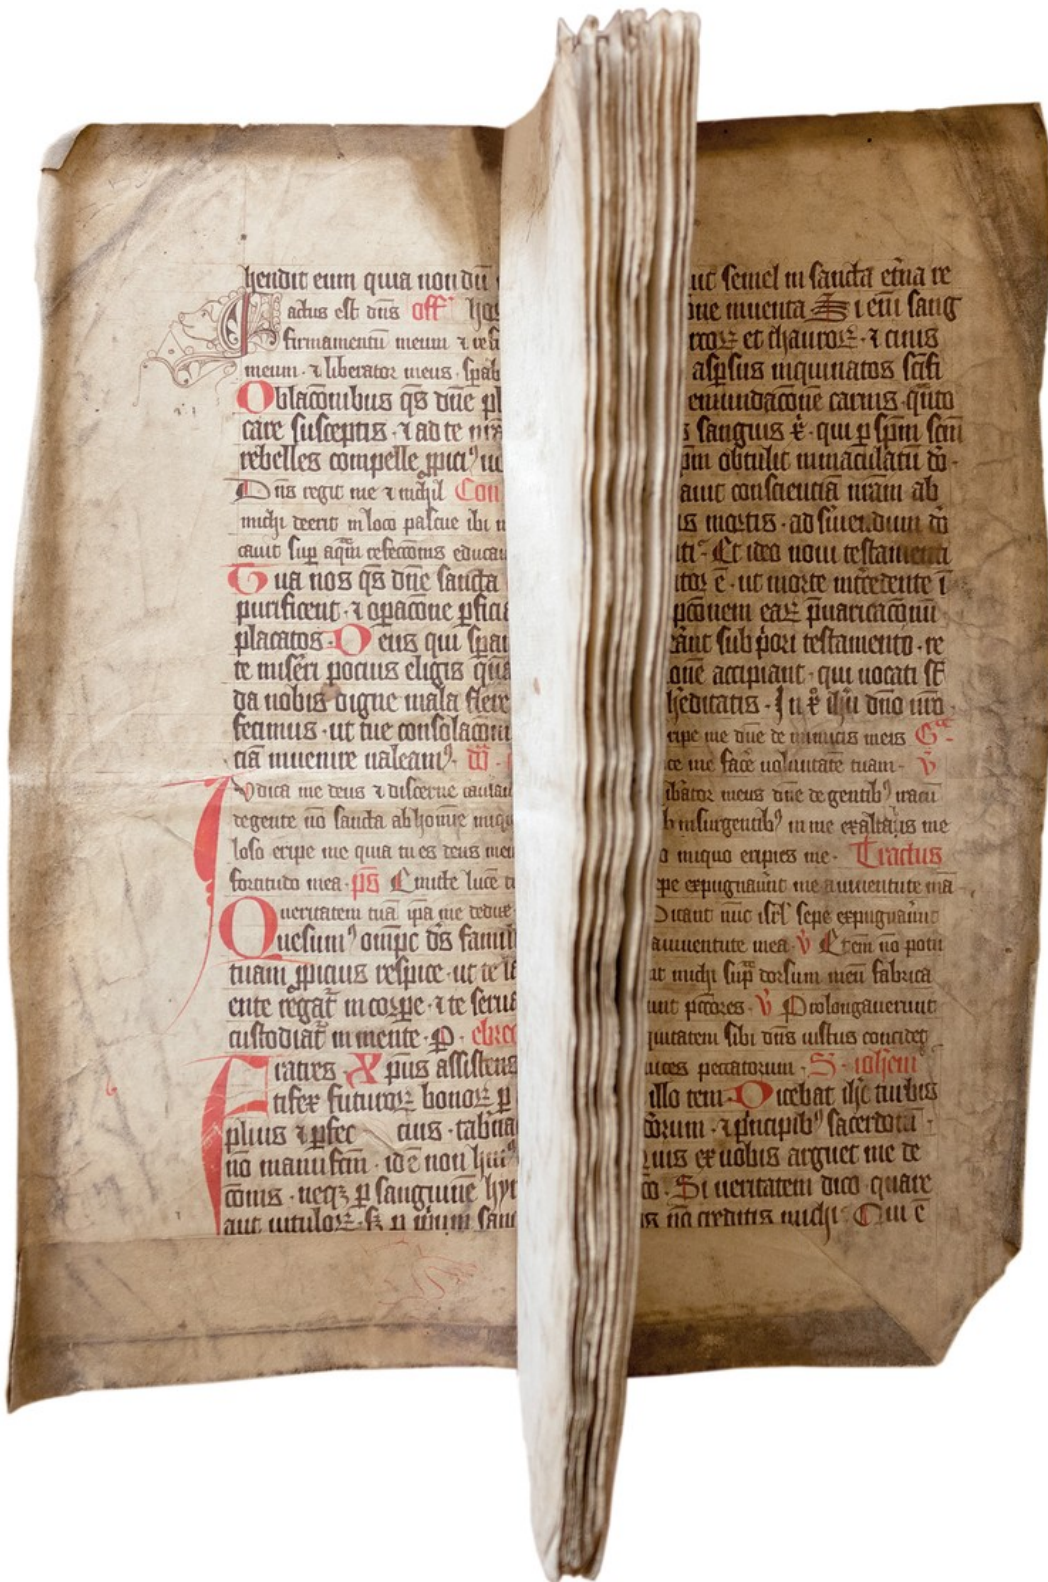 hendit eum quia non dū
actus est dn̄s off hos
firmamentū meum ⁊ refu
meum · ⁊ liberator meus · spab
Oblac̄onibus q̄s dn̄e pl
care susceptis · ⁊ ad te nr̄a
rebelles compelle ꝓpici⁹ uo
Dn̄s regit me ⁊ michil Com
michi deerit in loco pascue ibi
cauit sup̄ aquā refecc̄onis educau
Tua nos q̄s dn̄e sancta
purificent · ⁊ op̄ac̄one ꝑficiā
placatos · Deus qui
te mis̄eri pocius eligis quā
da nobis digne mala flere
fecimus · ut tue consolac̄oni
ciā inuenire ualeam⁹ ·
Iudica me deus ⁊ discerne causam
de gente nō sancta ab homīe iniq
loso eripe me quia tu es deus meu
fortitudo mea · ps Emitte lucē t
ueritatem tuā ip̄a me dedux
Quesum⁹ omīpc̄ ds̄ famil
tuam ꝓpicius respice · ut te la
ente regat̄ in corꝑe · ⁊ te serua
custodiat̄ in mente · P · ebreo
Fratres Xpus assistens
tifex futuroꝝ bonoꝝ p
plius ⁊ ꝑfec cius · tab̄na
nō manu fc̄m · id ē non hui⁹
c̄onis · neqꝫ ꝑ sanguinē hyr
aut uitulorꝝ · sꝫ
uit semel in sancta et̄na re
one inuenta Si em̄ sang
rcoꝝ et thauroꝝ · ⁊ cinis
aspsus inquinatos sc̄ifi
emundac̄onē carnis · q̄nto
s sanguis x̄ · qui ꝑ sp̄m scm̄
ip̄m obtulit inmaculatū dō ·
auit conscienciā nr̄am ab
is mortis · ad s̄uiendum dō
nti · Et ideo noui testamenti
itor ē · ut morte int̄cedente ī
pc̄onem eaꝝ p̄uaricac̄onū
erant sub p̄ori testamento · re
onē accipiant · qui uocati st̄
heditatis · In x̄ ih̄u dn̄o nr̄o ·
eripe me dn̄e de inimicis meis Gᵃ
ce me fac̄e uolūtatē tuam · v̄
ibator meus dn̄e de gentib⁹ iracū
b insurgentib⁹ in me exaltabis me
o iniquo eripies me · Tractus
epe expugnauīt me a iuuentute mā
Dicant nūc isrl̄ sepe expugnauīt
a iuuentute mea · v̄ Etem̄ nō potu
nt michi sup̄ dorsum meū fabrica
unt pc̄cores · v̄ Prolongauerunt
iquitatem sibi dn̄s iustus concideꝫ
uices peccatorum · S · ioh̄em
illo tem · Dicebat ih̄c turbis
dorum · ⁊ p̄ncipib⁹ sacerdotū ·
Quis ex uobis arguet me de
co · Si ueritatem dico quare
is nō creditis michi · Qui ē